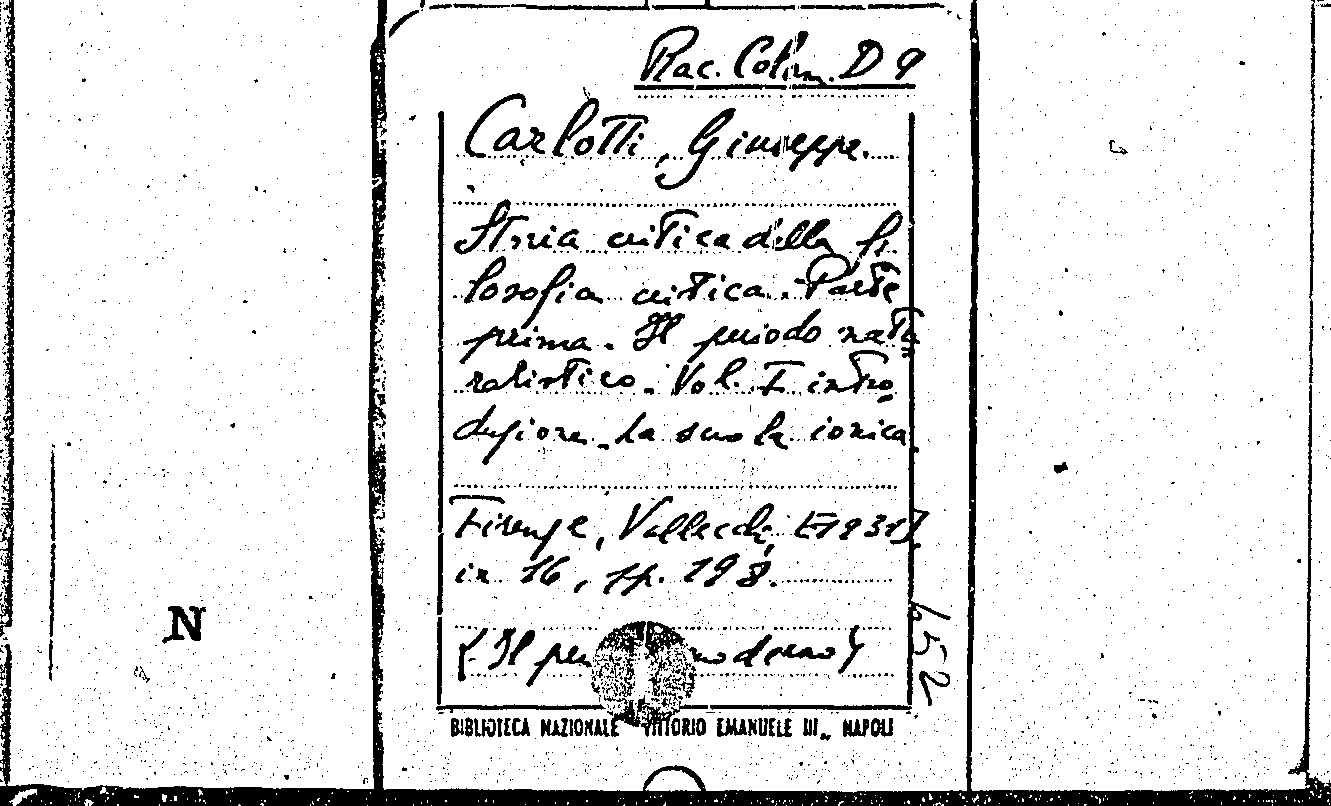 Rac. Colim. D 9
Carlotti, Giuseppe.
Storia critica della fi
losofia critica. Parte
prima. Il periodo natu
ralistico. Vol. I intro
duzione. La scuola ionica.
Firenze, Vallecchi, [1931],
in 16, pp. 198.
(. Il pen moderno)
652
N
BIBLIOTECA NAZIONALE VITTORIO EMANUELE III„ NAPOLI